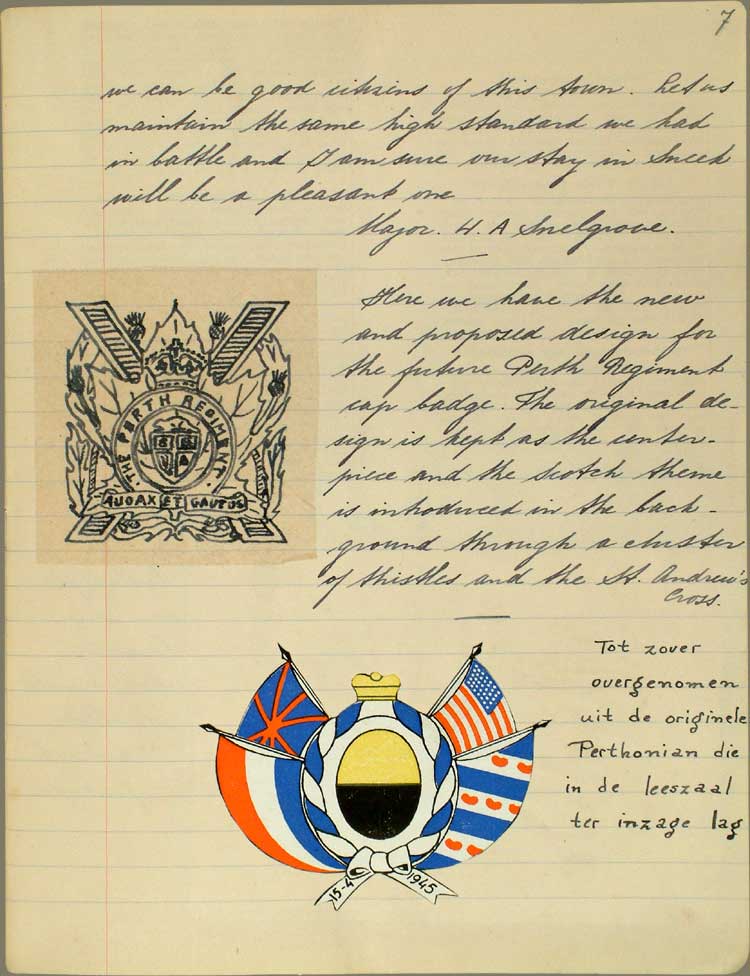 7
we can be good citizens of this town. Let us
maintain the same high standard we had
in battle and I am sure our stay in Sneek
will be a pleasant one
Major. H. A Snelgrove.
THE PERTH REGIMENT.
AUDAX ET CAUTUS
Here we have the new
and proposed design for
the future Perth Regiment
cap badge. The original de-
sign is kept as the center-
piece and the scotch theme
is introduced in the back-
ground through a cluster
of thistles and the St. Andrew's
Cross.
Tot zover
overgenomen
uit de originele
Perthonian die
in de leeszaal
ter inzage lag
15-4 1945